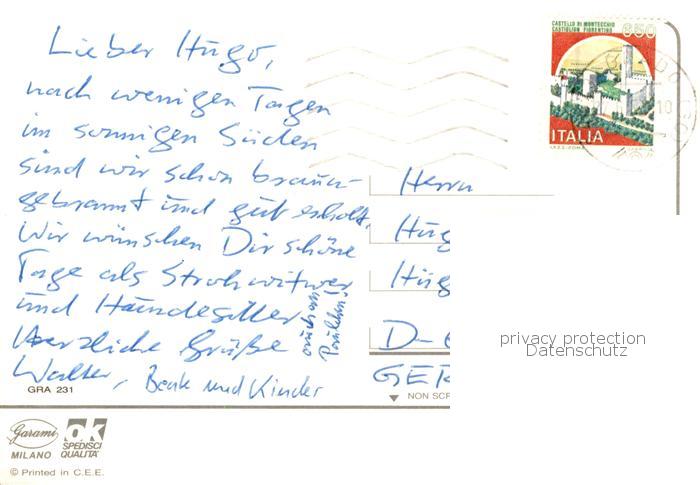 Lieber Hugo,
nach wenigen Tagen
im sonnigen Süden
sind wir schon braun-
gebrannt und gut erholt.
Wir wünschen Dir schöne
Tage als Strohwitwer
und
Herzliche Grüße
auch an
Walter, Beate und Kinder
GRA 231
CASTELLO DI MONTECCHIO
CASTIGLION FIORENTINO
650
ITALIA
I.P.Z.S.-ROMA
Herrn
Hug
Hüg
D-6
GER
NON SCR
privacy protection
Datenschutz
Garami
MILANO
ok
SPEDISCI
QUALITÀ
© Printed in C.E.E.